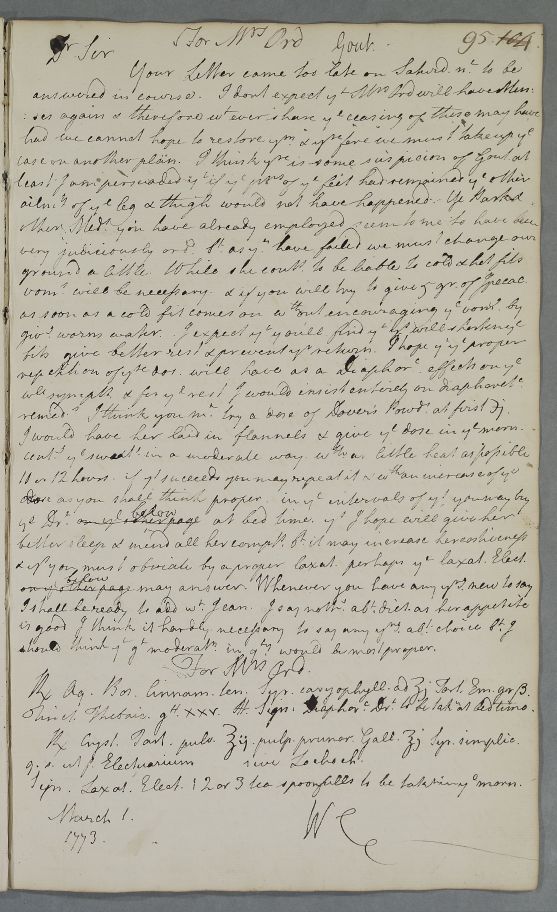 For Mrs Ord Gout. 95. 164
Dr Sir
Your Letter came too late on Saturd. nt. to be
answered in course. I dont expect yt Mrs Ord will have Men-
:ses again & therefore wt ever share ye ceasing of these may have
had we cannot hope to restore ym. & yrfore we must take up ye
case on another plan. I think yre is some suspicion of Gout at
least I am persuaded yt if ye of ye feet had remained ye other
ailmts of ye leg & thigh would not have happened. Ye Bark &
other Meds. you have already employed seem to me to have been
very judiciously ord. Bt. as ym have failed we must change our
ground a little. While she conts. to be liable to cold & hot fits
vomts will be necessary & if you will try to give 5 gr. of Ipecac.
as soon as a cold fit comes on wthout encouraging ye vomt. by
givg. warm water. I expect yt you'll find yt ys will shorten ye
fits give better rest & prevent yr return. I hope yt ye proper
repetition of yse dos. will have as a diaphor. effects on ye
whe sympts. & for ye rest I would insist entirely on diaphoret.
remeds. I think you mt. try a dose of Dovers Powdr. at first
I would have her laid in flannels & give ye dose in ye morn.
cont. ye sweat in a moderate way wth as little heat as possible
10 or 12 hours. if ys succeeds you may repeat it & wth an increase of ye
dose as you shall think proper. in ye intervals of ys. you may try
ye Dr. on ye other page below at bed time. ys I hope will give her
better sleep & mend all her compts. Bt. it may increase her costiveness
& ys you must obviate by a proper laxat. perhaps ye laxat. Elect.
on ye other page below may answer. Whenever you have any ys. new to say
I shall be ready to add wt. I can. I say noth. abt. diet. as her appetite
is good I think it hardly necessary to say any abt. choice Bt. I
should think yt gt moderatn. in would be most proper.
For Mrs Ord.
Rx Aq. Ros. Cinnam. ten. Syr. caryophyll. ad ʒj Tart. Em. gr. ß.
Tinct. Thebaic. gtt. xxv. H. Sign. Diaphor. Dr. to be tak. at bedtime.
Rx Cryst. Tart. pulv. ʒij pulp. prunor. Gall. ʒj Syr. simplic.
q. s. ut f. Electuarium sive Lochoch.
Sign. Laxat. Elect. 1 2 or 3 tea spoonfulls to be taken in ye morn.
March 1.
1773.
WC